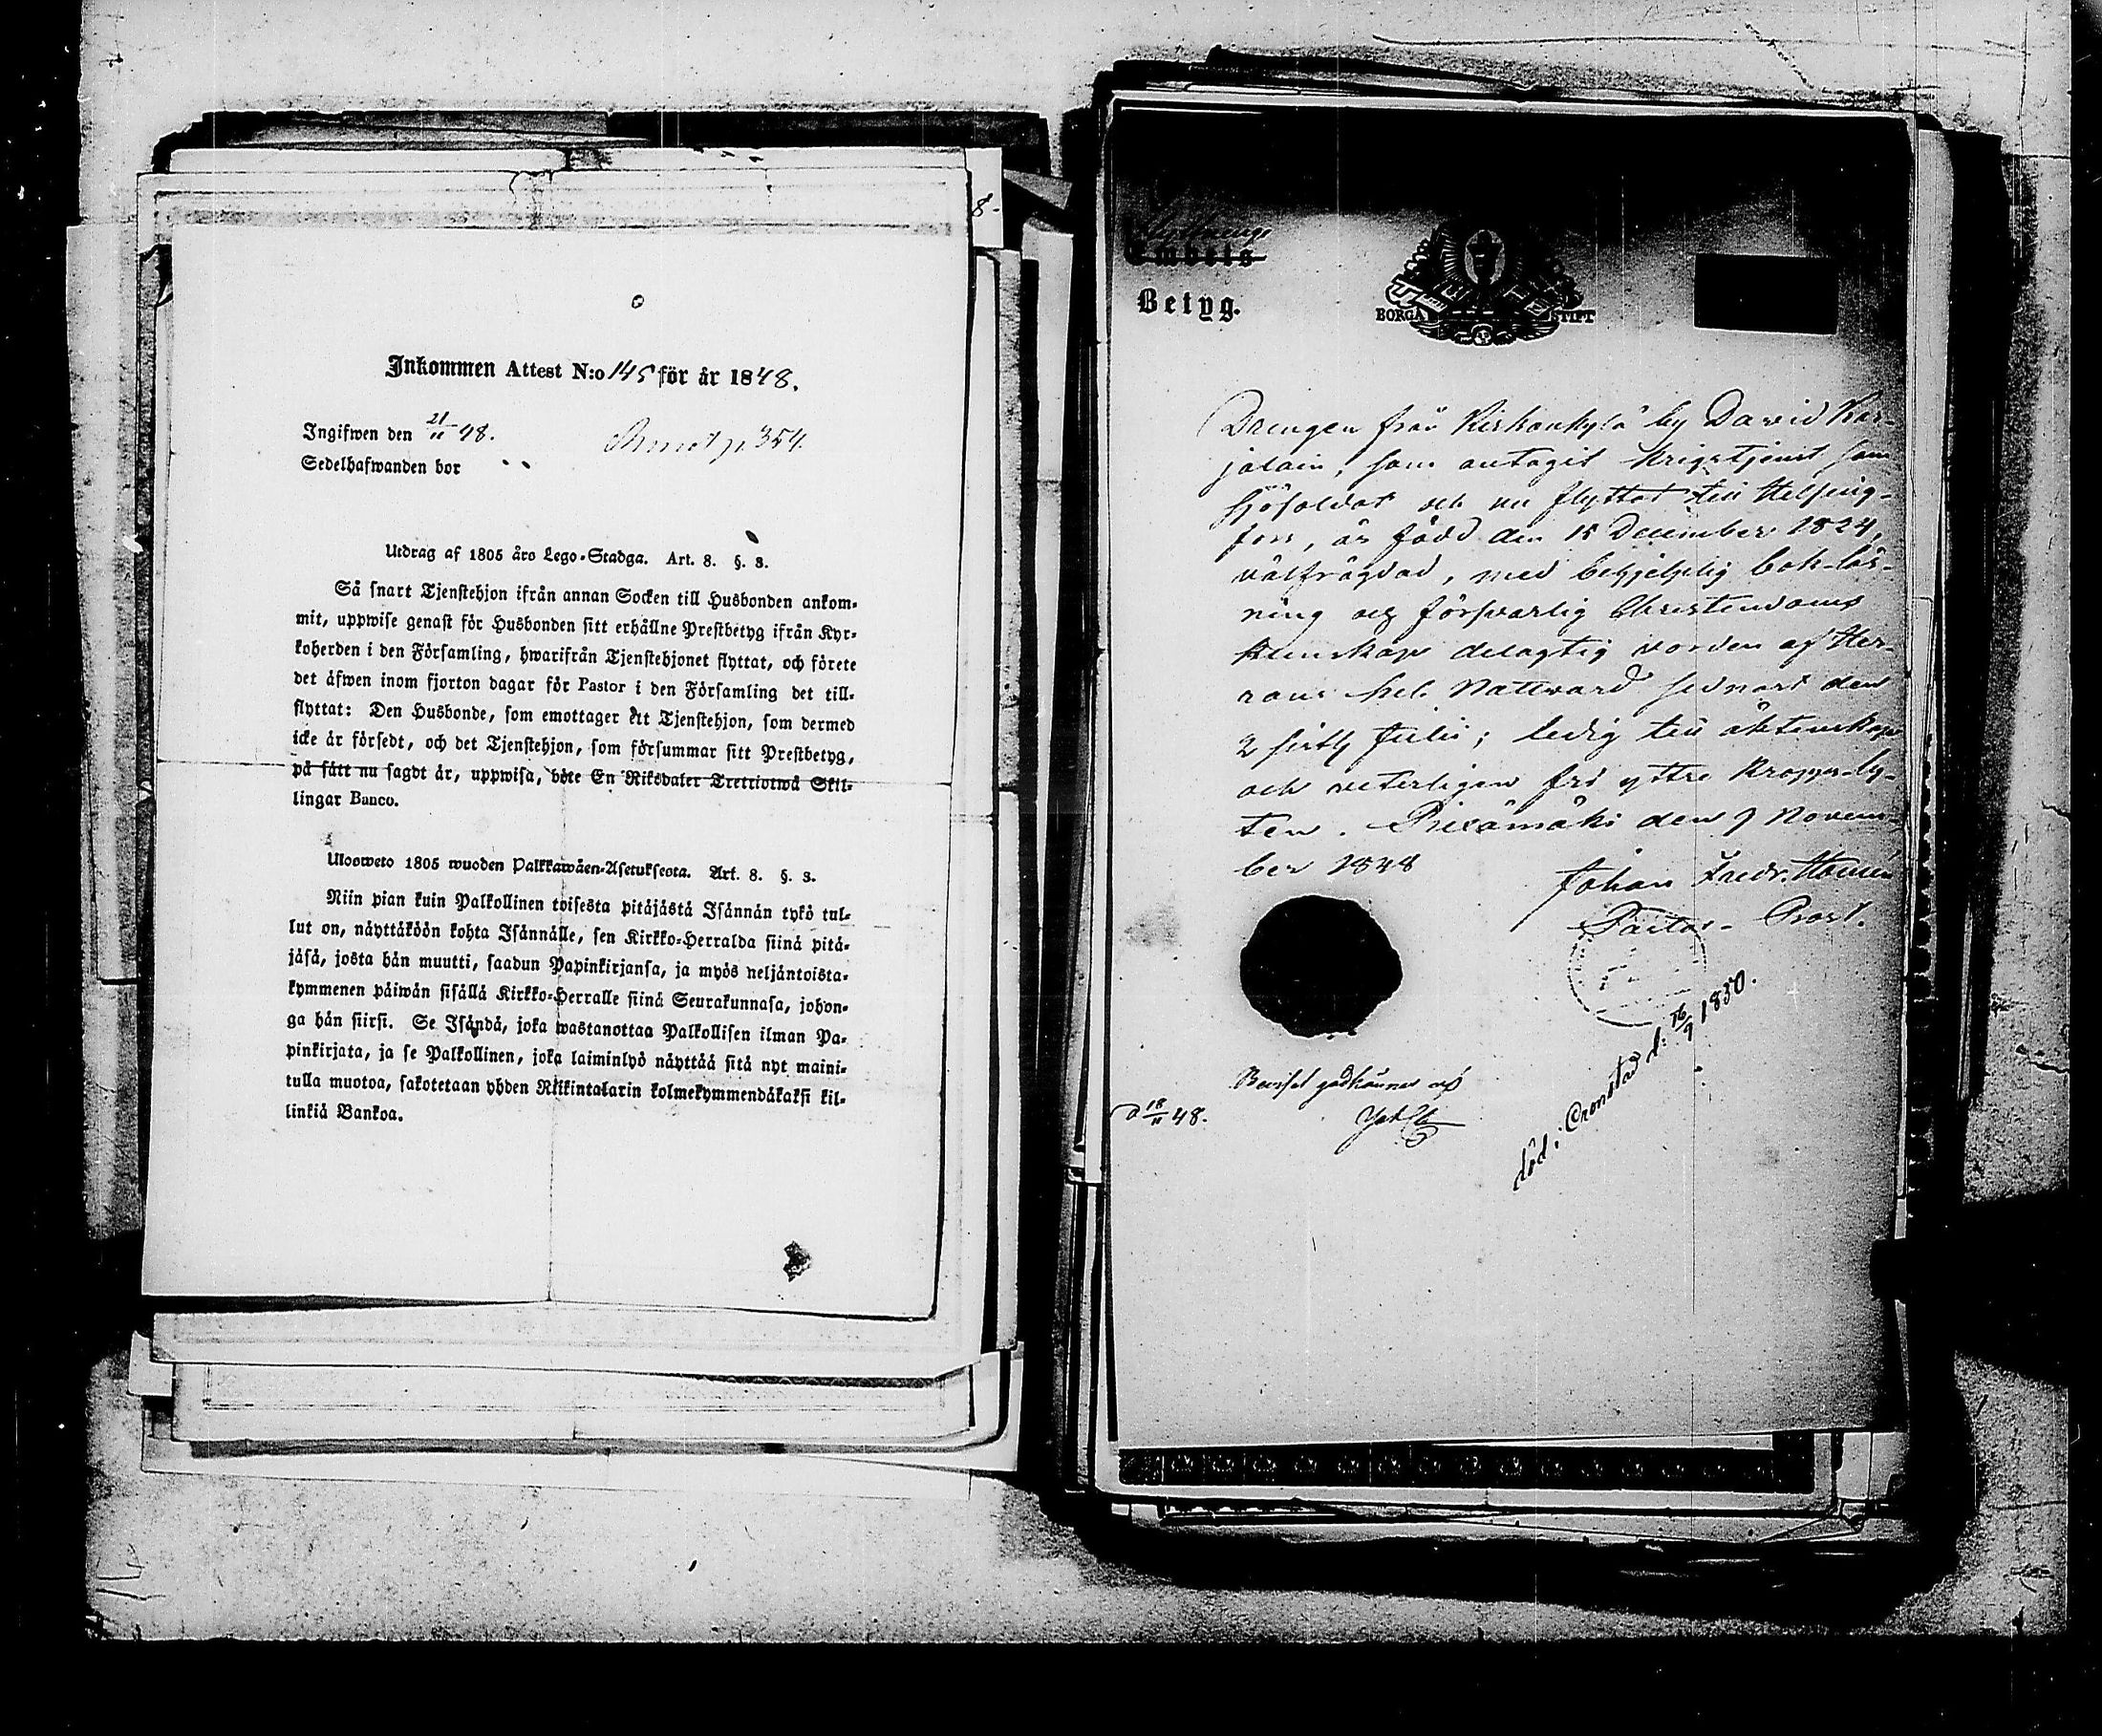 8-
Inkommen Attest N:o 145 för år 1848.
Ingifwen den 21/11 48.
p. 354.
Sedelhafwanden bor
Utdrag af 1805 års Lego-Stadga. Art. 8. §. 3.
Så snart Tjenstehjon ifrån annan Socken till Husbonden ankom-
mit, uppwise genast för Husbonden sitt erhållne Prestbetyg ifrån Kyr-
koherden i den Församling, hwarifrån Tjenstehjonet flyttat, och förete
det äfwen inom fjorton dagar för Pastor i den Församling det till-
flyttat: Den Husbonde, som emottager ett Tjenstehjon, som dermed
icke är försedt, och det Tjenstehjon, som försummar sitt Prestbetyg,
på sätt nu sagdt är, uppwisa, böte En Riksdaler Trettiotwå Skil-
lingar Banco.
Uloosweto 1805 wuoden Palkkawäen-Asetuksesta. Art. 8. §. 3.
Niin pian kuin Palkollinen toisesta pitäjästä Isännän tykö tul-
lut on, näyttäköön kohta Isännälle, sen Kirkko-Herralda siinä pitä-
jäsä, josta hän muutti, saadun Papinkirjansa, ja myös neljäntoista-
kymmenen päiwän sisällä Kirkko-Herralle siinä Seurakunnasa, johon-
ga hän siirsi. Se Isändä, joka wastanottaa Palkollisen ilman Pa-
pinkirjata, ja se Palkollinen, joka laiminlyö näyttää sitä nyt maini-
tulla muotoa, sakotetaan yhden Riikintalarin kolmekymmendäkaksi kil-
linkiä Bankoa.
Flyttnings
Embets
Betyg.
BORGÅ STIFT
Drengen från Kirkonkylä by David Kar-
jalain, som antagit Krigstjenst som
Sjösoldat och nu flyttat till Helsing-
fors, är född den 15 December 1824,
välfrägdad, med behjelplig bok-läs-
ning och försvarlig Christendoms
kunskap delagtig vorden af Her-
rans hel. Nattvard sednast den
2 sistl. Julii; ledig till äktenskap
och veterligen fri yttre kropps-ly-
ten. den 9 Novem-
ber 1848
Johan Fredr.
Pastor - Prost.
Beviset godkännes af
d 18/11 48.
död i Cronstad d: 16/9 1850.